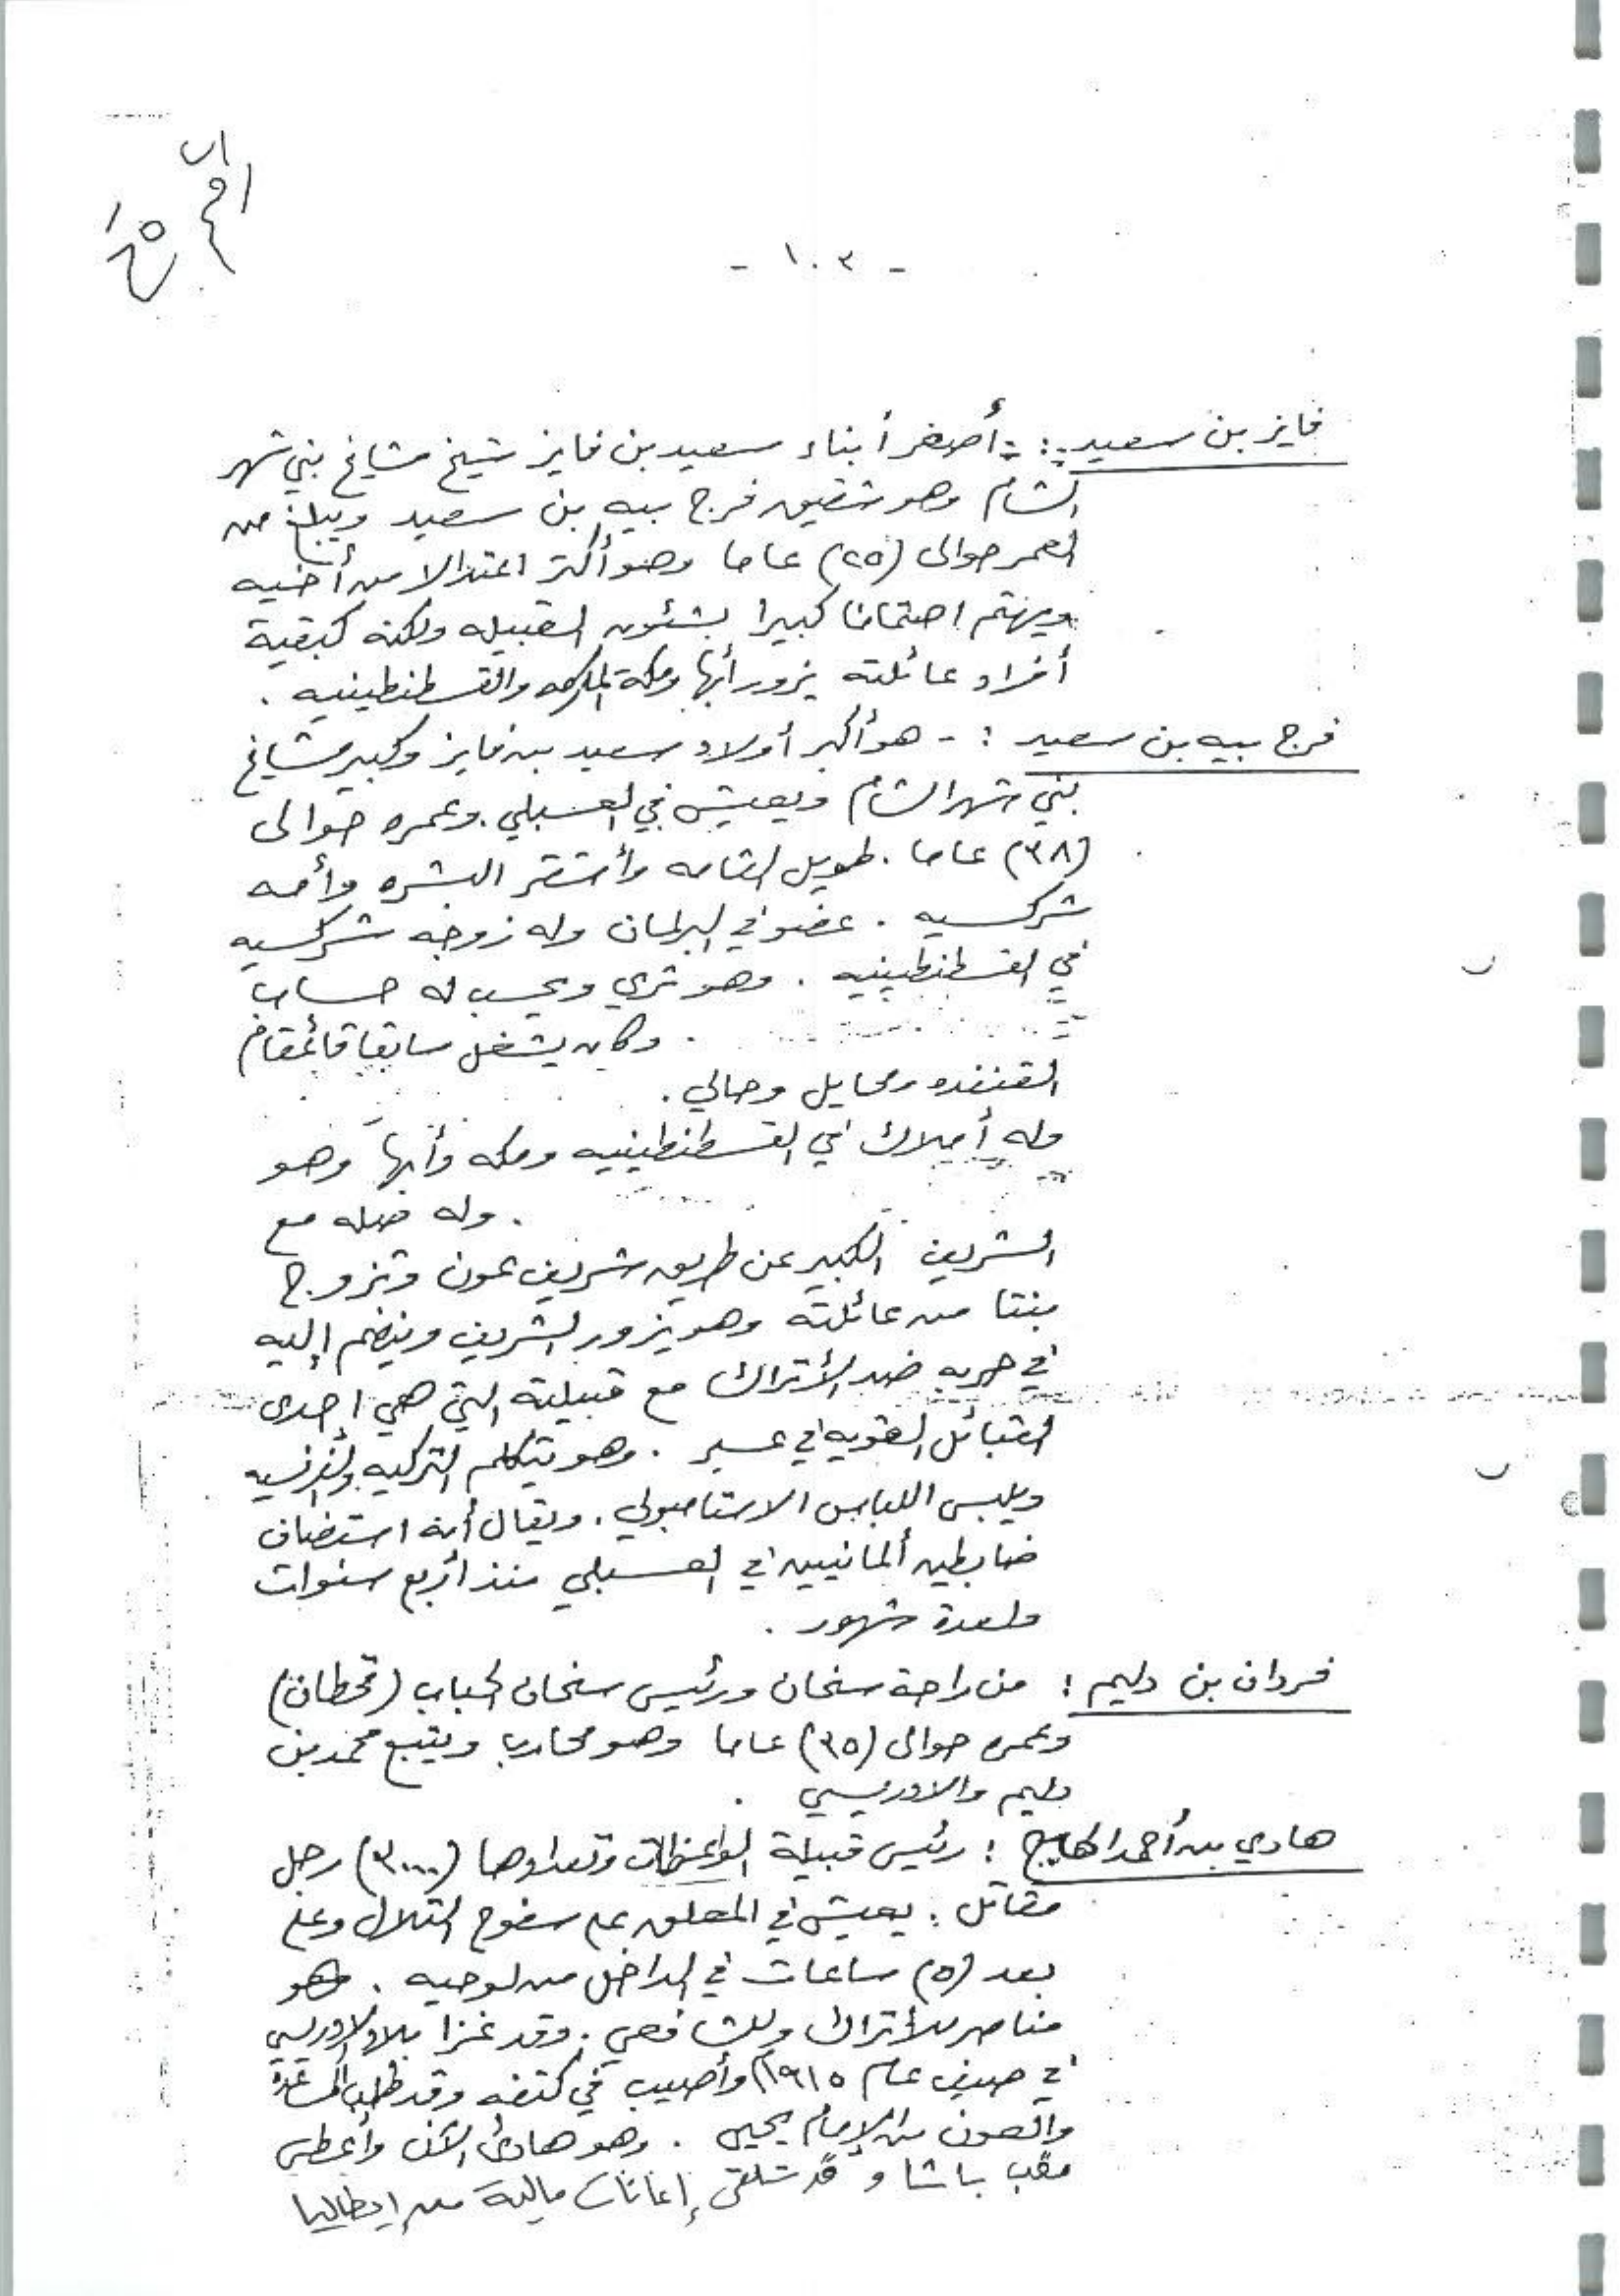 - ١٠٣ -
فايز بن سعيد :- أصغر أبناء سعيد بن فايز شيخ مشايخ بني شهر
الشام وهو شقيق فرج بيه بن سعيد ويبلغ من
العمر حوالى (٢٥) عاما وهو أكثر اعتدالا من أخيه
ويهتم اهتماما كبيرا بشئون القبيله ولكنه كبقية
أفراد عائلته يزور أبها ومكة المكرمه والقسطنطينيه .
فرج بيه بن سعيد :- هو أكبر أولاد سعيد بن فايز وكبير مشايخ
بني شهر الشام ويعيش في العسبلي . وعمره حوالى
(٣٨) عاما . طويل القامه وأشقر البشره وأمه
شركسيه . عضو في البرلمان وله زوجه شركسيه
في القسطنطينيه . وهو ثري ويحسب له حساب
. وكان يشغل سابقا قائمقام
القنفده ومحايل وحالي .
وله أملاك في القسطنطينيه ومكه وأبها وهو
. وله صله مع
الشريف الكبير عن طريق شريف عون وتزوج
بنتا من عائلته وهو يزور الشريف وينضم إليه
في حربه ضد الأتراك مع قبيلته التي هي احدى
القبائل القويه في عسير . وهو يتكلم التركيه والفرنسيه
ويلبس اللباس الاستامبولي . ويقال أنه استضاف
ضابطين ألمانيين في العسبلي منذ أربع سنوات
ولعدة شهور .
فردان بن دليم : من راحة سنحان ورئيس سنحان الحباب (قحطان)
وعمره حوالى (٣٥) عاما وهو محارب ويتبع محمد بن
دليم والادريسي .
هادي بن أحمد الهايج : رئيس قبيلة الواعظات وتعدادها (٣٠٠٠) رجل
مقاتل . يعيش في المعلق على سفوح التلال وعلى
بعد (٥) ساعات في الداخل من لوحيه . وهو
مناصر للأتراك وللشافعي . وقد غزا بلاد الادريسي
في صيف عام ١٩١٥م وأصيب في كتفه وقد طلب المساعدة
والعون من الإمام يحيى . وهو هادئ الآن وأعطى
لقب باشا و قد تلقى إعانات مالية من إيطاليا